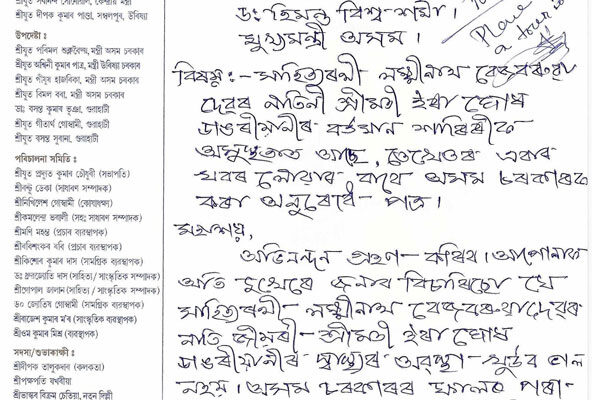 শ্রীযুত দীপক কুমার পাণ্ডা, সম্বলপুৰ, উৰিষ্যা
উপদেষ্টা :
শ্রীযুত পবিমল শুক্লবৈদ্য, মন্ত্রী অসম চৰকাৰ
শ্রীযুত অশ্বিনী কুমাৰ পাত্র, মন্ত্রী উৰিষ্যা চৰকাৰ
শ্রীযুত পীযূষ হাজৰিকা, মন্ত্রী অসম চৰকাৰ
শ্রীযুত বিমল বৰা, মন্ত্রী অসম চৰকাৰ
ডাঃ বসন্ত কুমাৰ ভূঞা, গুৱাহাটী
শ্রীযুত গীতার্থ গোস্বামী, গুৱাহাটী
শ্রীযুত বসন্ত সুবানা, গুৱাহাটী
পৰিচালনা সমিতি :
শ্রীযুত প্রদ্যুত কুমাৰ চৌধুৰী (সভাপতি)
শ্রীৰন্টু ডেকা (সাধাৰণ সম্পাদক)
শ্রীনিখিলেশ গোস্বামী (কোষাধ্যক্ষ)
শ্রীকমলেন্দ্র ভৰালী (সহঃ সাধাৰণ সম্পাদক)
শ্রীমণি মহন্ত (প্রচাৰ ব্যৱস্থাপক)
শ্রীৰবিশংকৰ ৰবি (প্রচাৰ ব্যৱস্থাপক)
শ্রীকিশোৰ কুমাৰ দাস (সামগ্রিক ব্যৱস্থাপক)
ডঃ ব্রজজ্যোতি দাস (সাহিত্য / সাংস্কৃতিক সম্পাদক)
শ্রীগোপাল জালান (সাহিত্য / সাংস্কৃতিক সম্পাদক)
ড০ জ্যোতিষ গোস্বামী (সামগ্রিক ব্যৱস্থাপক)
শ্রীৰাজেশ কুমাৰ ম'ৰ (সাংস্কৃতিক ব্যৱস্থাপক)
শ্রীওম কুমাৰ মিশ্র (ব্যৱস্থাপক)
সদস্য/শুভাকাংক্ষী :
শ্রীদীপক তালুকদাৰ (কলকতা)
শ্রীপক্ষপতি ষখৰীয়া
শ্রীভাস্কৰ বিক্রম চেতিয়া, নতুন দিল্লী
ডঃ হিমন্ত বিশ্ব শর্মা।
মুখ্যমন্ত্রী অসম।
Place
a tour
বিষয়:- সাহিত্যৰথী লক্ষ্মীনাথ বেজবৰুৱা
দেৱৰ নাতিনী শ্রীমতী ইৰা ঘোষ
ডাঙৰীয়ানীৰ বর্তমান শাৰিৰীক
অসুস্থতাত আছে, তেখেতৰ এবাৰ
খবৰ লোৱাৰ বাবে অসম চৰকাৰক
কৰা অনুৰোধ - পত্র।
মহাশয়,
অভিনন্দন গ্রহণ কৰিব। আপোনাক
অতি দুখেৰে জনাব বিচাৰিছো যে
সাহিত্যৰথী লক্ষ্মীনাথ বেজবৰুৱাদেৱৰ
নাতি জীয়ৰী - শ্রীমতী ইৰা ঘোষ
ডাঙৰীয়ানীৰ স্বাস্থ্যৰ অৱস্থা ভাল
নহয়। অসম চৰকাৰৰ ফালৰ পৰা